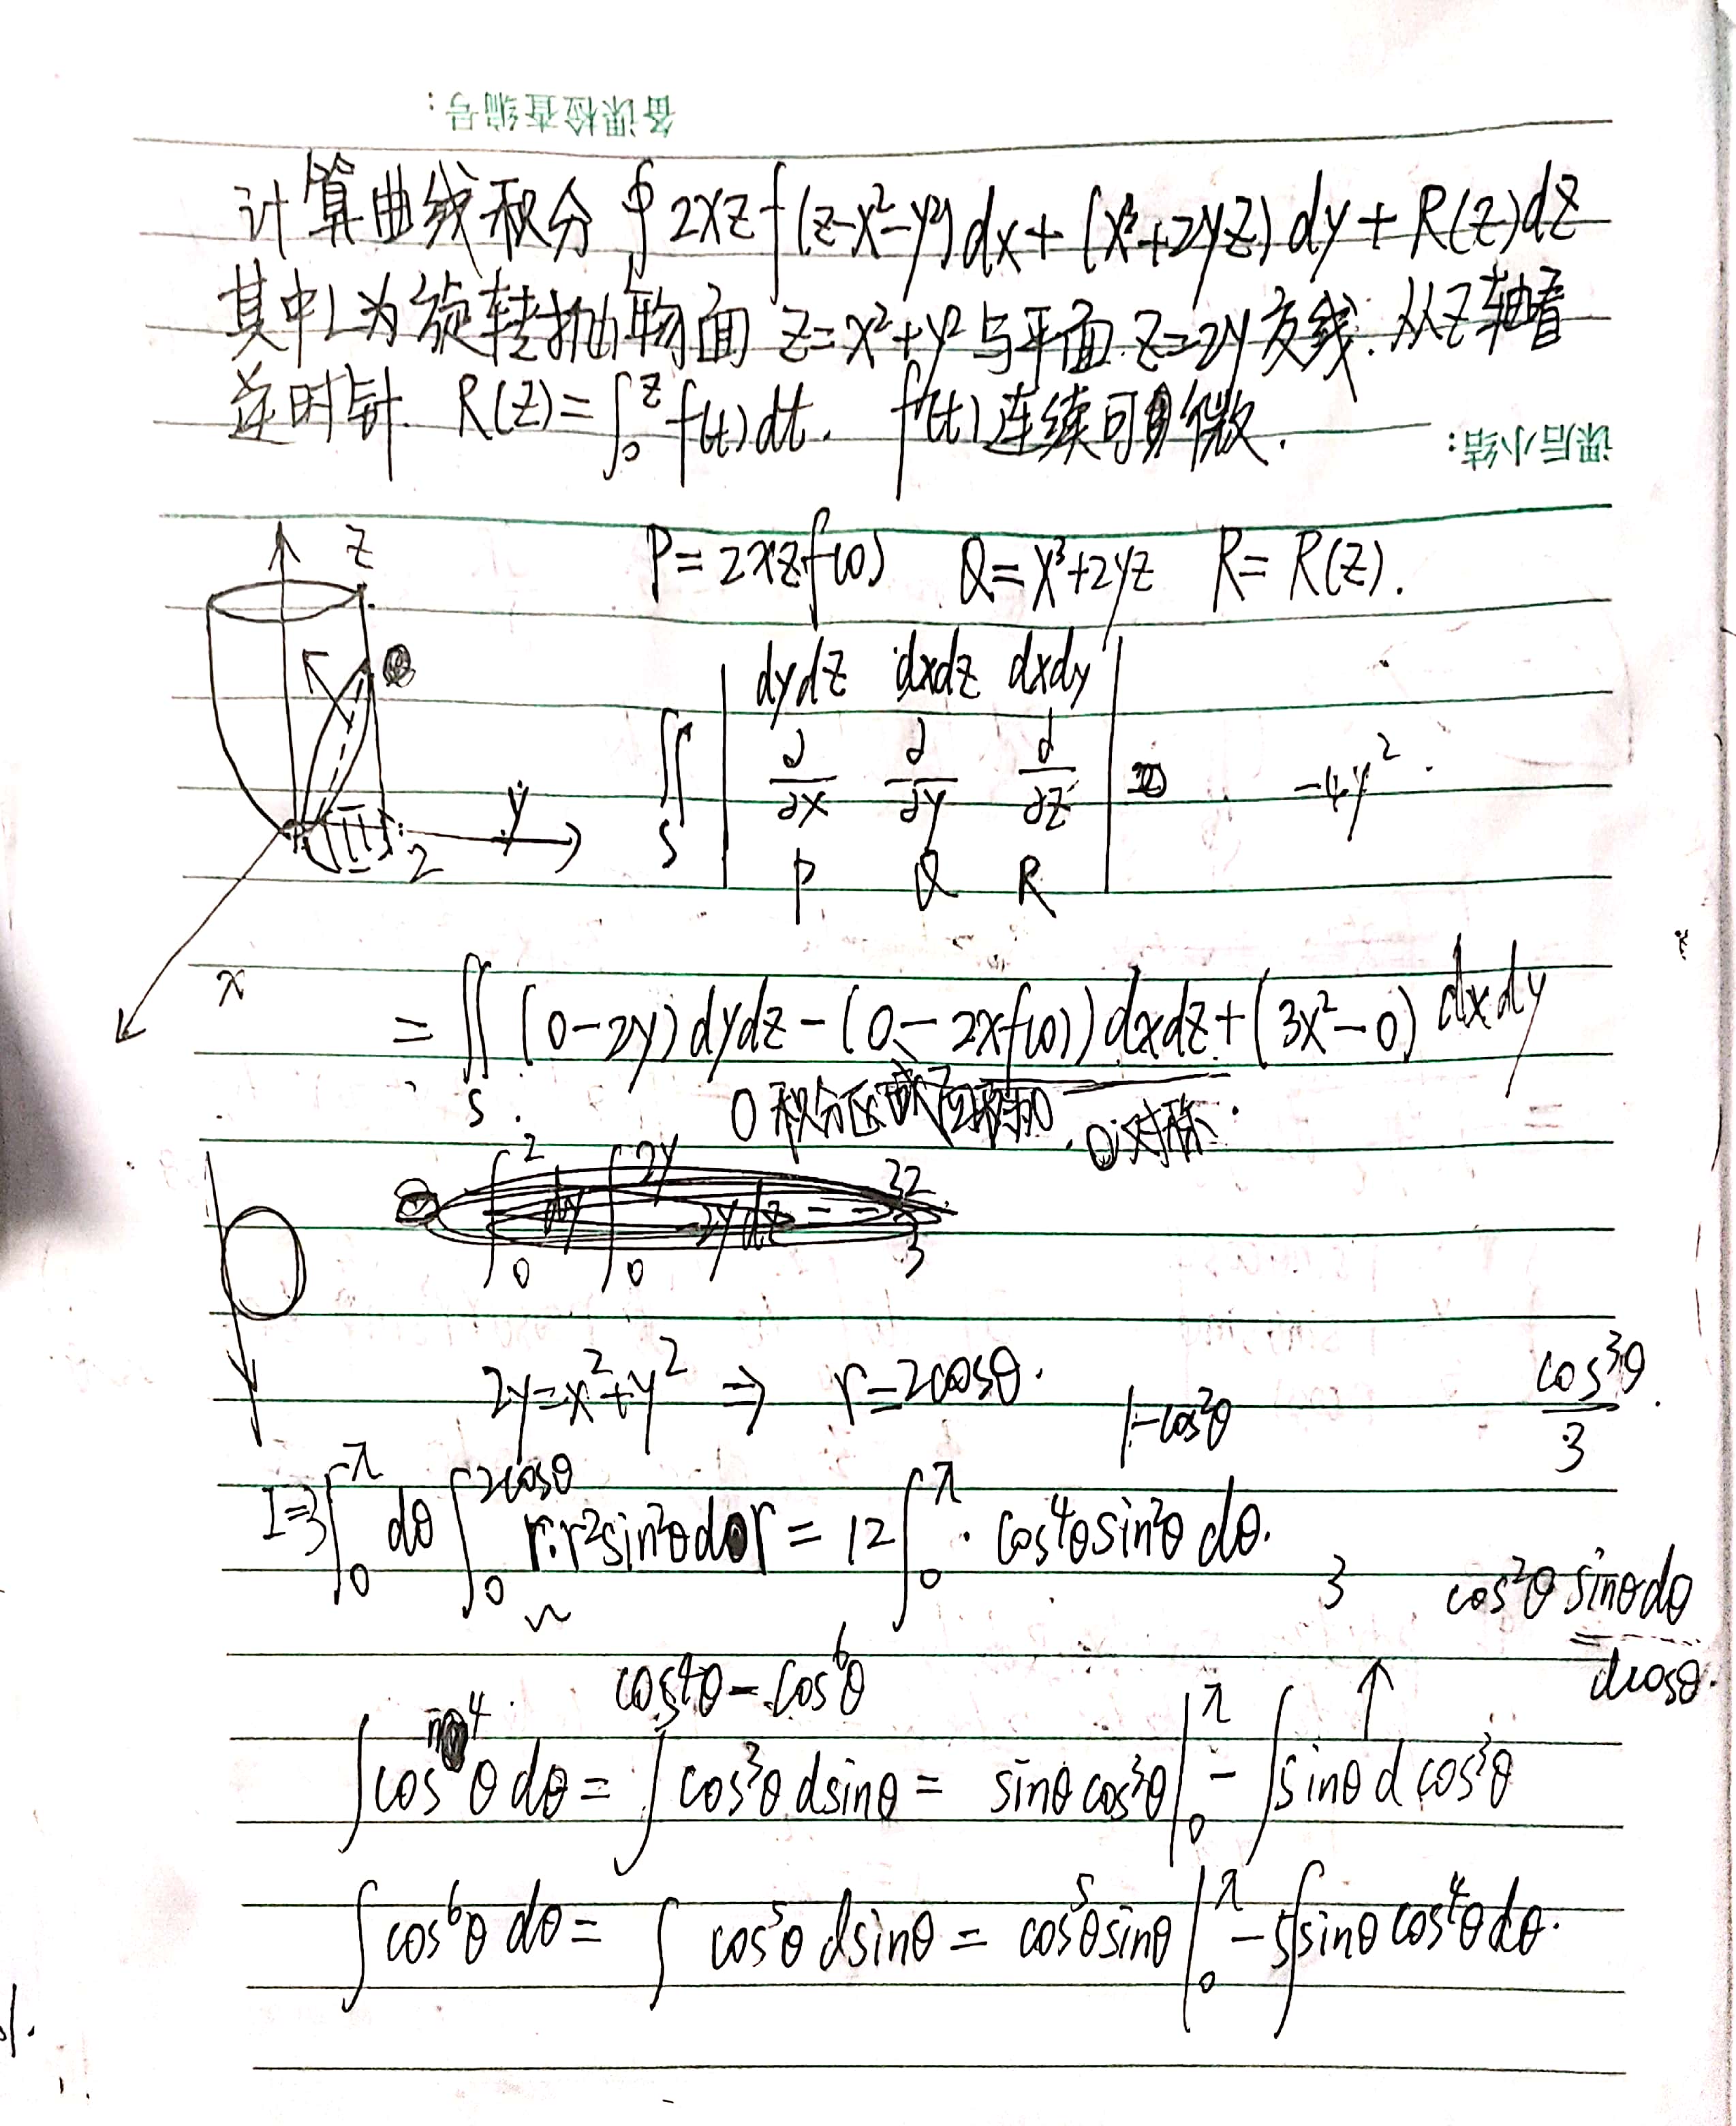 备课检查编号：
计算曲线积分 ∮_L 2xzf(z-x²-y²)dx+(x³+2yz)dy+R(z)dz
其中L为旋转抛物面 z=x²+y²与平面 z=2y交线.从z轴看
逆时针. R(z)=∫₀^z f(t)dt. f(t)连续可微.
课后小结：
z
P=2xzf(0) Q=x³+2yz R=R(z).
dydz dxdz dxdy
∬_S | ∂/∂x ∂/∂y ∂/∂z | -4y².
P Q R
y
2
x
=∬_S (0-2y)dydz-(0-2xf(0))dxdz+(3x²-0)dxdy
0 对称.
∫₀² dy ∫₀^{2y} -2ydz 32/3
2y=x²+y² ⇒ r=2cosθ. 1-cos²θ cos³θ/3.
I=3∫₀^π dθ ∫₀^{2cosθ} r·r²sin²θdr=12∫₀^π cos⁴θsin²θdθ.
3 cos²θ sinθdθ
dcosθ.
cos⁴θ-cos⁶θ
∫cos⁴θdθ=∫cos³θdsinθ=sinθcos³θ|₀^π-∫sinθdcos³θ
∫cos⁶θdθ=∫cos⁵θdsinθ=cos⁵θsinθ|₀^π-5∫sinθcos⁴θdθ.